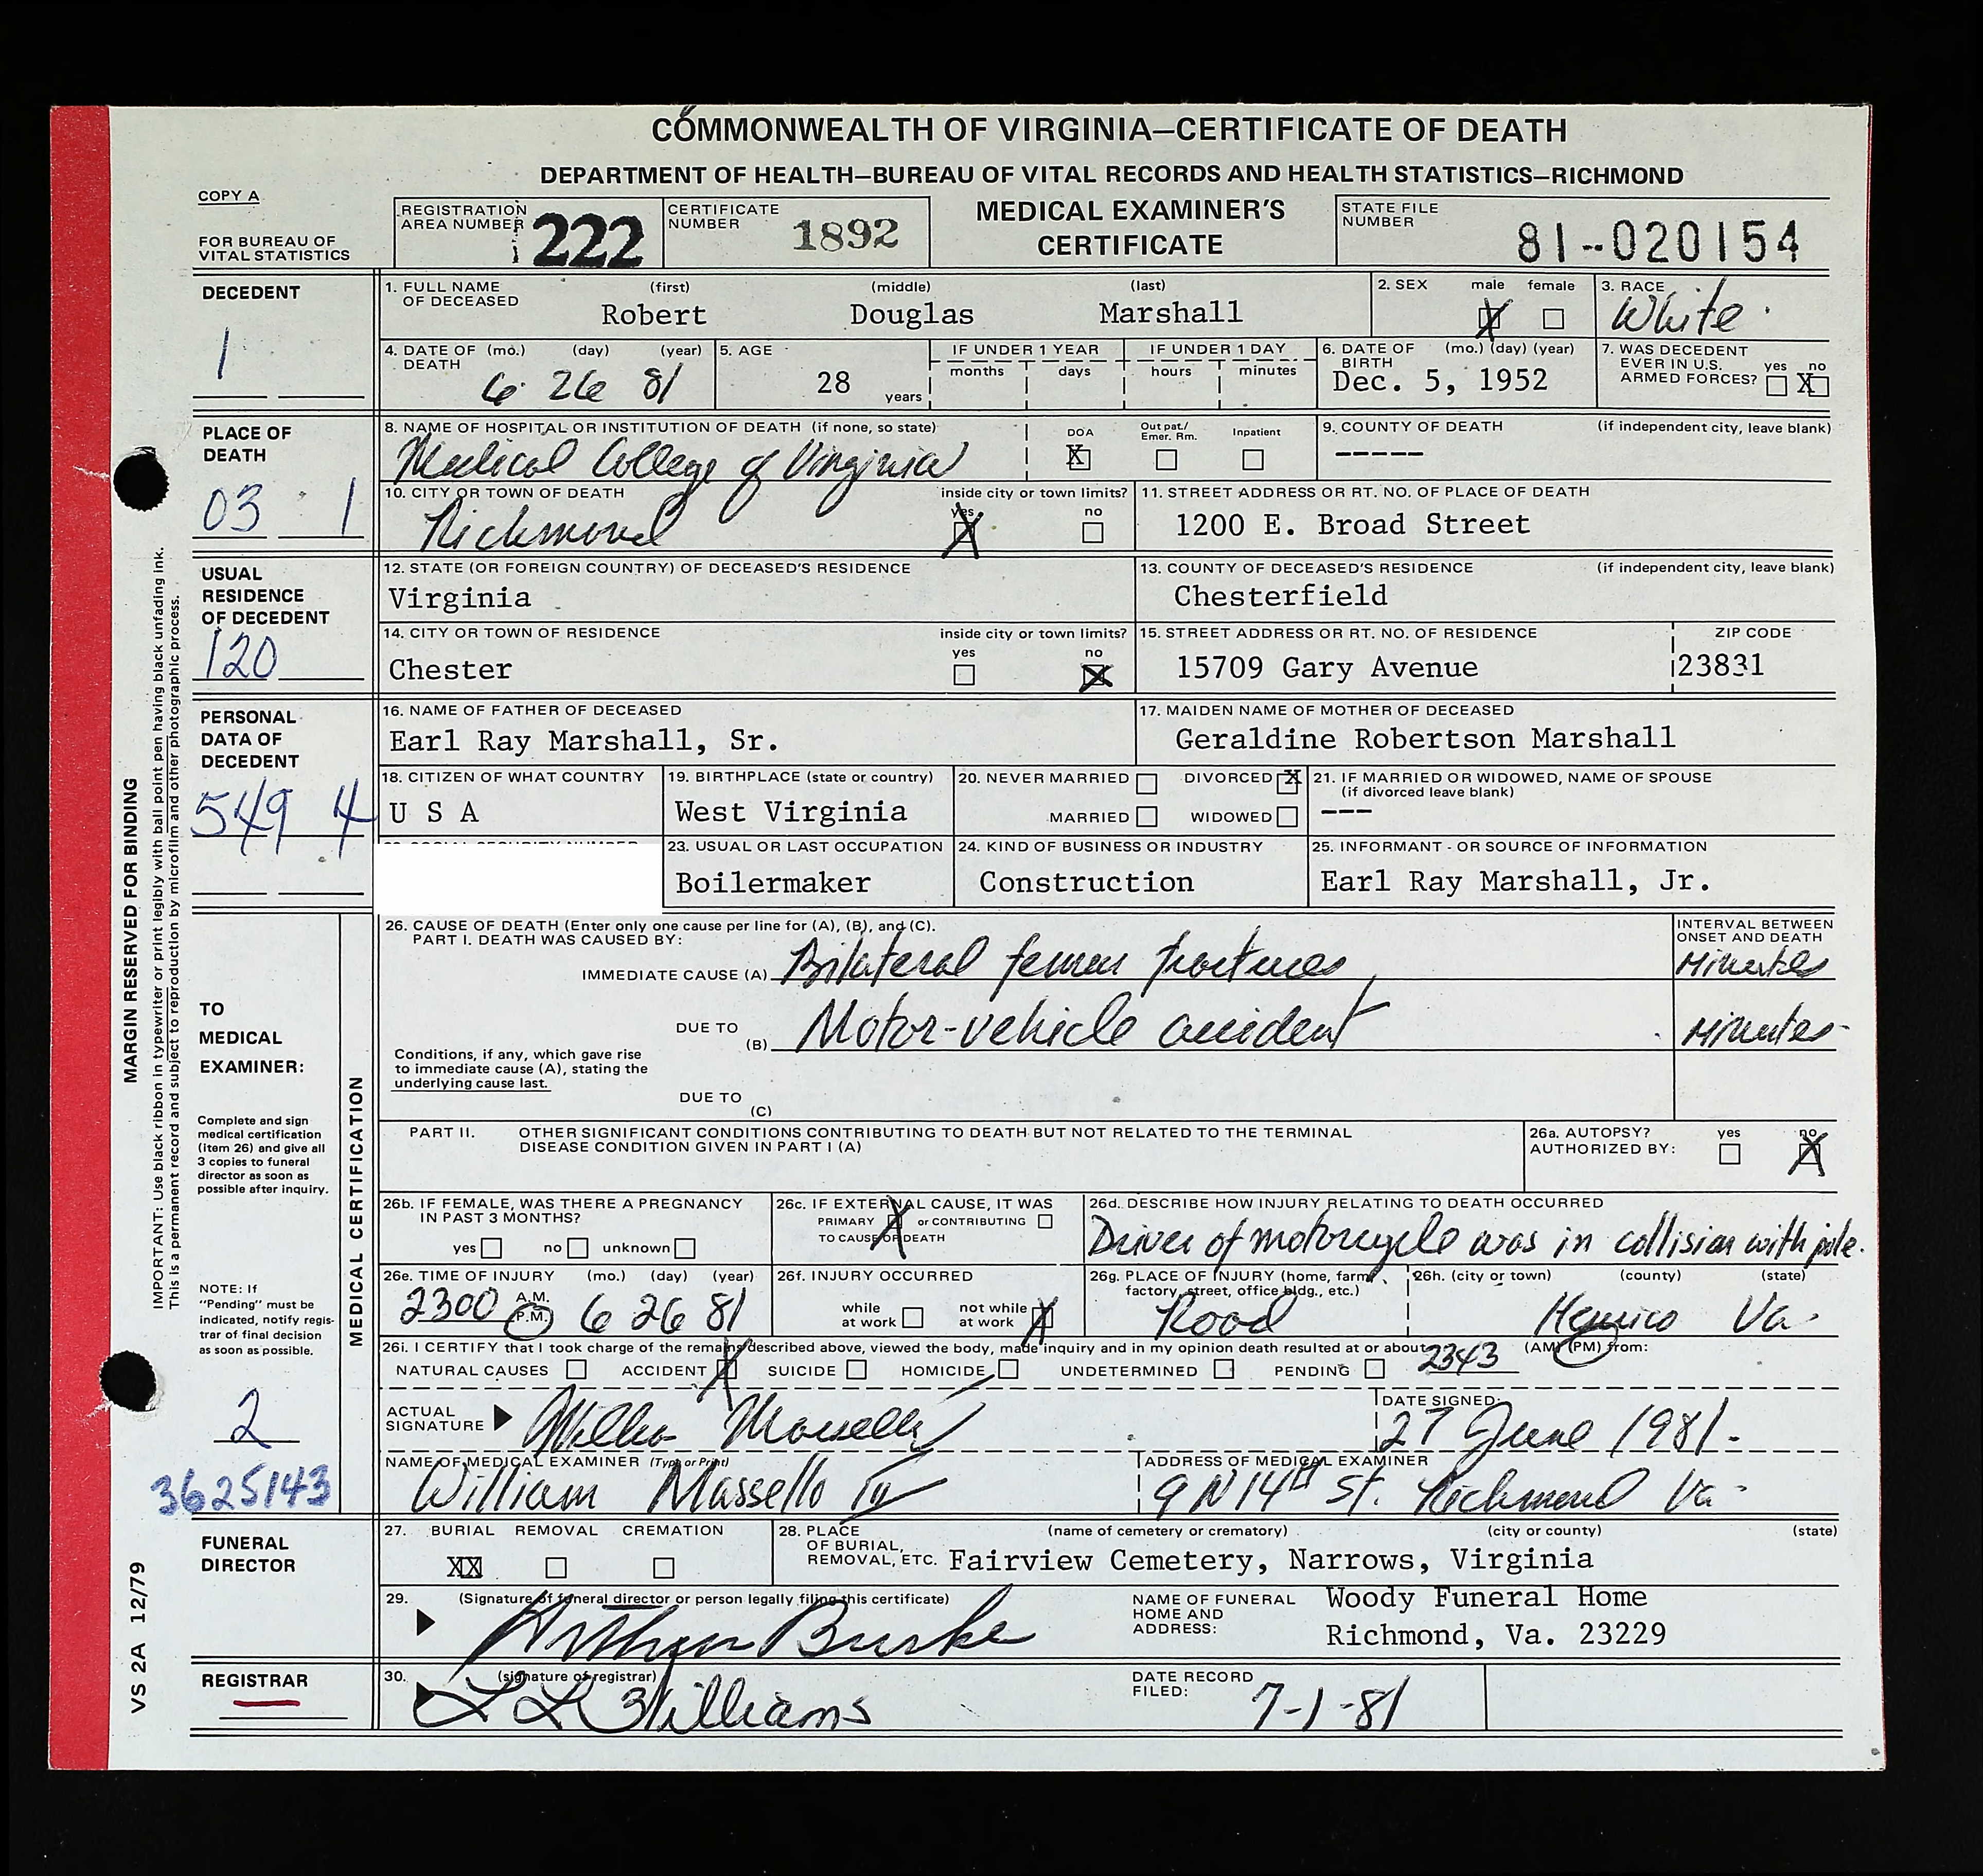 COMMONWEALTH OF VIRGINIA—CERTIFICATE OF DEATH
DEPARTMENT OF HEALTH—BUREAU OF VITAL RECORDS AND HEALTH STATISTICS—RICHMOND
COPY A
FOR BUREAU OF VITAL STATISTICS
REGISTRATION AREA NUMBER 222
CERTIFICATE NUMBER 1892
MEDICAL EXAMINER'S CERTIFICATE
STATE FILE NUMBER 81-020154
DECEDENT
1
1. FULL NAME OF DECEASED (first) (middle) (last)
Robert Douglas Marshall
2. SEX male female
X
3. RACE
White
4. DATE OF DEATH (mo.) (day) (year)
6 26 81
5. AGE
28 years
IF UNDER 1 YEAR
months days
IF UNDER 1 DAY
hours minutes
6. DATE OF BIRTH (mo.) (day) (year)
Dec. 5, 1952
7. WAS DECEDENT EVER IN U.S. ARMED FORCES? yes no
X
PLACE OF DEATH
03 1
8. NAME OF HOSPITAL OR INSTITUTION OF DEATH (if none, so state)
Medical College of Virginia
DOA Out pat./ Emer. Rm. Inpatient
X
9. COUNTY OF DEATH (if independent city, leave blank)
-----
10. CITY OR TOWN OF DEATH
Richmond
inside city or town limits? yes no
X
11. STREET ADDRESS OR RT. NO. OF PLACE OF DEATH
1200 E. Broad Street
USUAL RESIDENCE OF DECEDENT
120
12. STATE (OR FOREIGN COUNTRY) OF DECEASED'S RESIDENCE
Virginia
13. COUNTY OF DECEASED'S RESIDENCE (if independent city, leave blank)
Chesterfield
14. CITY OR TOWN OF RESIDENCE
Chester
inside city or town limits? yes no
X
15. STREET ADDRESS OR RT. NO. OF RESIDENCE
15709 Gary Avenue
ZIP CODE
23831
PERSONAL DATA OF DECEDENT
549 4
16. NAME OF FATHER OF DECEASED
Earl Ray Marshall, Sr.
17. MAIDEN NAME OF MOTHER OF DECEASED
Geraldine Robertson Marshall
18. CITIZEN OF WHAT COUNTRY
U S A
19. BIRTHPLACE (state or country)
West Virginia
20. NEVER MARRIED DIVORCED X
MARRIED WIDOWED
21. IF MARRIED OR WIDOWED, NAME OF SPOUSE
(if divorced leave blank)
---
23. USUAL OR LAST OCCUPATION
Boilermaker
24. KIND OF BUSINESS OR INDUSTRY
Construction
25. INFORMANT - OR SOURCE OF INFORMATION
Earl Ray Marshall, Jr.
MARGIN RESERVED FOR BINDING
IMPORTANT: Use black ribbon in typewriter or print legibly with ball point pen having black unfading ink.
This is a permanent record and subject to reproduction by microfilm and other photographic process.
TO MEDICAL EXAMINER:
Complete and sign medical certification (item 26) and give all 3 copies to funeral director as soon as possible after inquiry.
NOTE: If "Pending" must be indicated, notify registrar of final decision as soon as possible.
2
3625143
MEDICAL CERTIFICATION
26. CAUSE OF DEATH (Enter only one cause per line for (A), (B), and (C).
PART I. DEATH WAS CAUSED BY:
INTERVAL BETWEEN ONSET AND DEATH
IMMEDIATE CAUSE (A) Bilateral femur fractures Minutes
DUE TO (B) Motor-vehicle accident Minutes
Conditions, if any, which gave rise to immediate cause (A), stating the underlying cause last.
DUE TO (C)
PART II. OTHER SIGNIFICANT CONDITIONS CONTRIBUTING TO DEATH BUT NOT RELATED TO THE TERMINAL DISEASE CONDITION GIVEN IN PART I (A)
26a. AUTOPSY? yes no
AUTHORIZED BY: X
26b. IF FEMALE, WAS THERE A PREGNANCY IN PAST 3 MONTHS?
yes no unknown
26c. IF EXTERNAL CAUSE, IT WAS
PRIMARY X or CONTRIBUTING
TO CAUSE OF DEATH
26d. DESCRIBE HOW INJURY RELATING TO DEATH OCCURRED
Driver of motorcycle was in collision with pole.
26e. TIME OF INJURY (mo.) (day) (year)
2300 A.M. P.M. 6 26 81
26f. INJURY OCCURRED
while at work not while at work X
26g. PLACE OF INJURY (home, farm, factory, street, office bldg., etc.)
Road
26h. (city or town) (county) (state)
Henrico Va.
26i. I CERTIFY that I took charge of the remains described above, viewed the body, made inquiry and in my opinion death resulted at or about 2343 (AM) (PM) from:
NATURAL CAUSES ACCIDENT X SUICIDE HOMICIDE UNDETERMINED PENDING
ACTUAL SIGNATURE William Massello
DATE SIGNED:
27 June 1981.
NAME OF MEDICAL EXAMINER (Type or Print)
William Massello III
ADDRESS OF MEDICAL EXAMINER
9 N 14th St. Richmond Va.
FUNERAL DIRECTOR
27. BURIAL REMOVAL CREMATION
XX
28. PLACE OF BURIAL, REMOVAL, ETC. (name of cemetery or crematory) (city or county) (state)
Fairview Cemetery, Narrows, Virginia
29. (Signature of funeral director or person legally filing this certificate)
Arthur Burke
NAME OF FUNERAL HOME AND ADDRESS:
Woody Funeral Home
Richmond, Va. 23229
REGISTRAR
30. (signature of registrar)
L L Williams
DATE RECORD FILED:
7-1-81
VS 2A 12/79